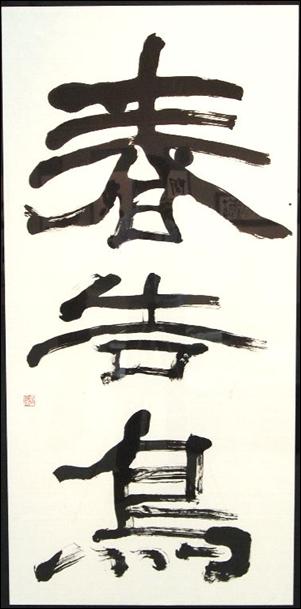 春告鳥